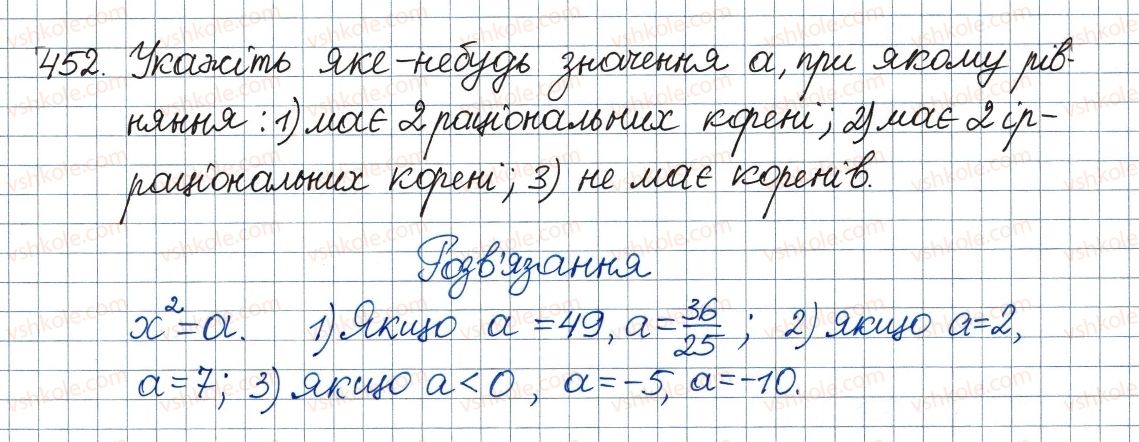 452. Укажіть яке-небудь значення a, при якому рів-
няння: 1) має 2 раціональних корені; 2) має 2 ір-
раціональних корені; 3) не має коренів.
Розв'язання
x²=a. 1) Якщо a = 49, a = 36/25; 2) якщо a=2,
a=7; 3) якщо a<0, a=-5, a=-10.